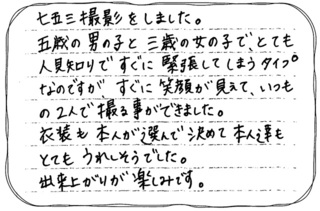 七五三撮影をしました。
五歳の男の子と三歳の女の子で、とても
人見知りですぐに緊張してしまうタイプ
なのですが、すぐに笑顔が見えて、いつも
の2人で撮る事ができました。
衣装も本人が選んで決めて本人達も
とてもうれしそうでした。
出来上がりが楽しみです。